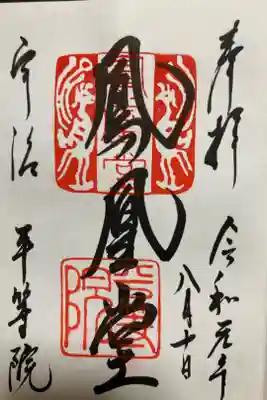 奉拝
令和元年
八月十日
鳳凰堂
宇治
平等院